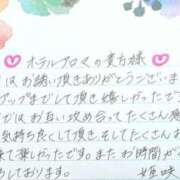 ホテルアロマの貴方様
はお誘い頂きありがとうございま
アップまでして頂き嬉しかったで
はお互い攻め合ってたくさん感
気持ち良くして頂き、そしてたくさんお
来て楽しかったです。またお時間が
しております。 姫咲